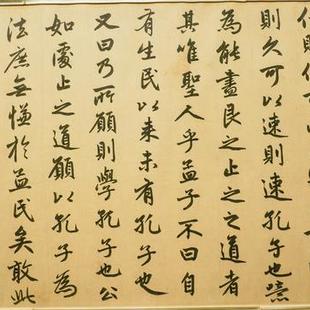 則久可以速則速孔子也噫
為能盡艮止之道者
其唯聖人乎孟子不曰自
有生民以来未有孔子也
又曰乃所願則學孔子也公
如處止之道願以孔子為
法庶無慊於孟氏矣敢此